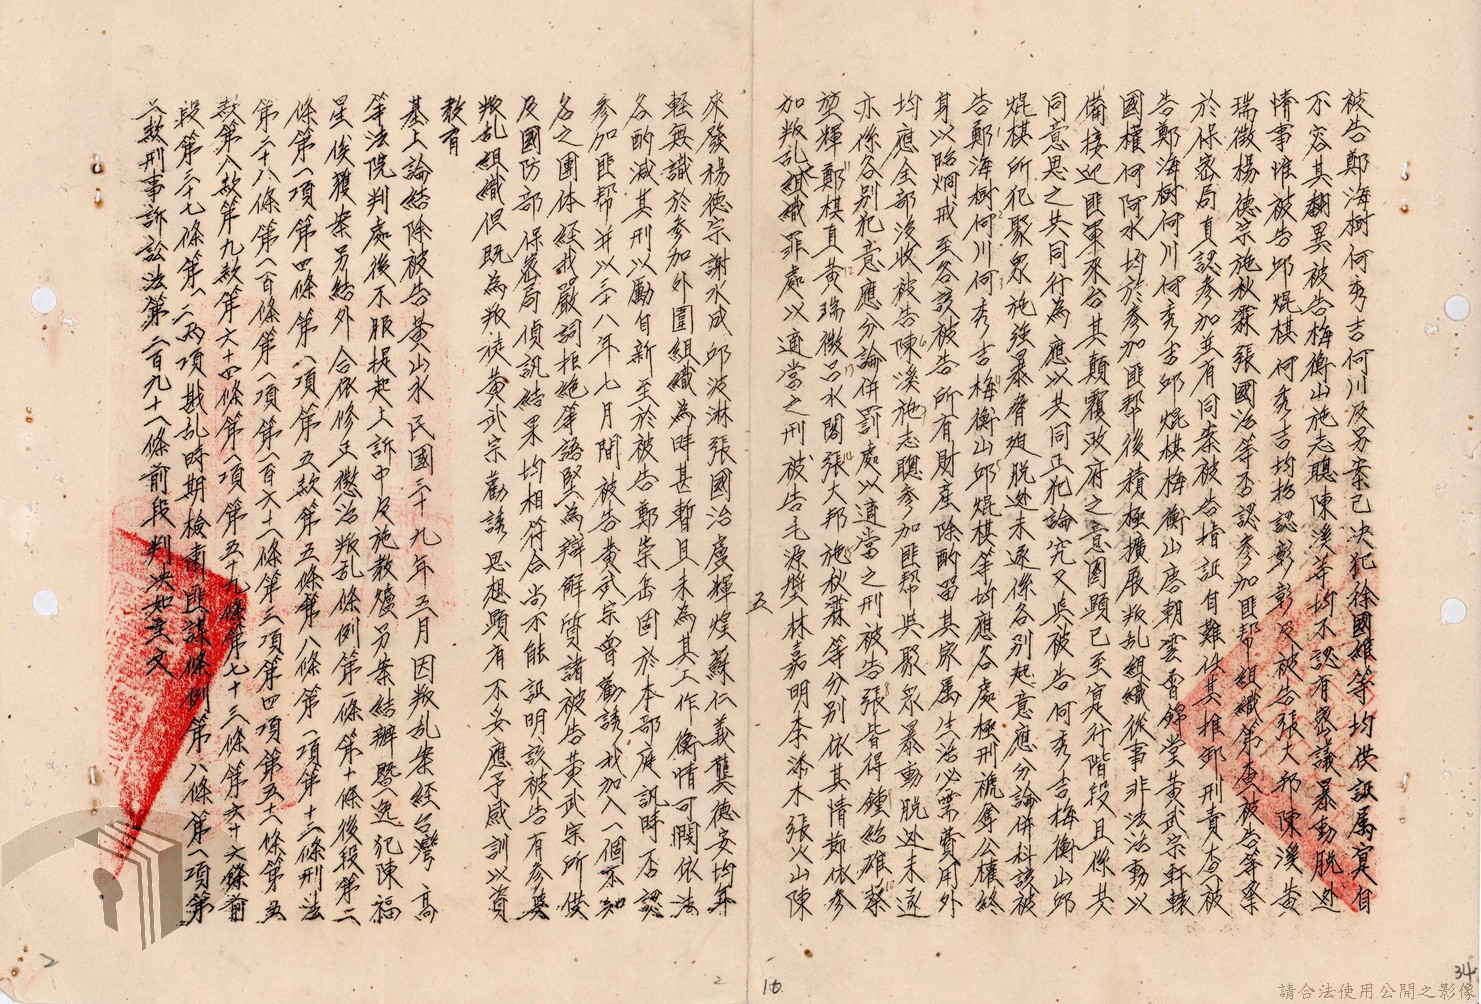 被告鄭海樹何秀吉何川及另案已決犯徐國維等均供証屬實自
不容其翻異被告梅衡山施志聰陳溪等均不認有密議暴動脫逃
情事惟被告邱焜棋何秀吉均指認彰彰及被告張大邦陳溪黃
瑞徵楊德宗施秋霖張國治等否認參加匪幫組織第查被告等案
於保密局直認參加並有同案被告指証自難任其推卸刑責查被
告鄭海樹何川何秀吉邱焜棋梅衡山唐朝雲晋錦堂黃武宗軒轅
國權何阿水均於參加匪幫後積極擴展叛乱組織從事非法活動以
備接迎匪軍來台其顛覆政府之意圖顯已至実行階段且係共
同意思之共同行為應以共同正犯論究又吳被告何秀吉梅衡山邱
焜棋所犯聚眾施強暴脅迫脫逃未遂係各別起意應分論併科該被
告鄭海樹何川何秀吉梅衡山邱焜棋等均應各處極刑褫奪公權終
身以昭炯戒至各該被告所有財產除酌留其家屬生活必需費用外
均應全部沒收被告陳溪施志聰參加匪幫與聚眾暴動脫逃未遂
亦係各別犯意應分論併罰處以適當之刑被告張皆得鍾紿雄蔡
堃輝鄭棋直黃瑞徵呂水閣張大邦施秋霖等分別依其情節依參
加叛乱組織罪處以適當之刑被告毛源奬林嘉明李添木張火山陳
五
來發楊德宗謝水成邱波淋張國治盧輝煌蘇仁義龔德安均年
輕無識於參加外圍組織為時甚暫且未為其工作衡情可憫依法
各酌減其刑以勵自新至於被告鄭榮岳固於本部庭訊時否認
參加匪幫並以三十八年七月間被告黃武宗曾勸誘我加入一個不知
名之團体經我嚴詞拒絕等語堅為辯解質諸被告黃武宗所供
及國防部保密局偵訊結果均相符合尚不能証明該被告有參與
叛乱組織但既為叛徒黃武宗勸誘思想顯有不妥應予感訓以資
教育
基上論結除被告黃山水民國三十九年五月因叛乱案經台灣高
等法院判處後不服提起上訴中及施教爐另案結辦暨逃犯陳福
星俟獲案另結外合依修正懲治叛乱條例第二條第十條後段第二
條第一項第四條第八項第五款第五條第八條第一項第十二條刑法
第二十八條第一百條第一項第一百六十一條第三項第四項第五十一條第五
款第八款第九款第六十四條第一項第五十九條第七十三條第六十六條前
段第三十七條第一二兩項戡乱時期檢肅匪諜條例第八條第一項第
二款刑事訴訟法第二百九十一條前段判決如主文
2
2
16
34
請合法使用公開之影像